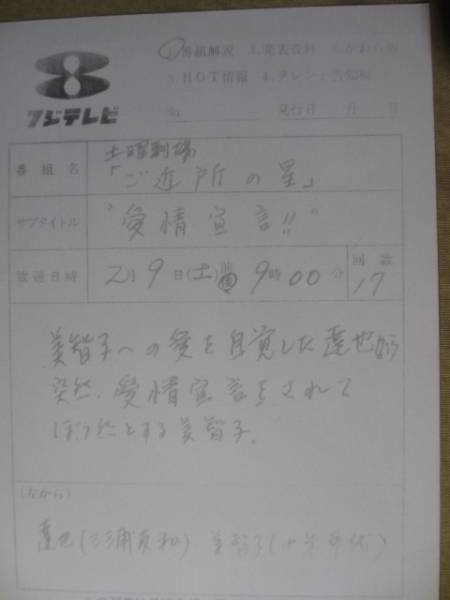 ①番組解説 2.発表資料 3.かわら版
3.HOT情報 4.タレント告知板
フジテレビ
No.
発行日 月 日
番組名
土曜劇場
「ご近所の星」
サブタイトル
"愛情宣言!!"
放送日時
2月9日(土)前後9時00分
回数
17
美智子への愛を自覚した達也から
突然、愛情宣言をされて
ぼう然とする美智子。
(左から)
達也(三浦友和) 美智子